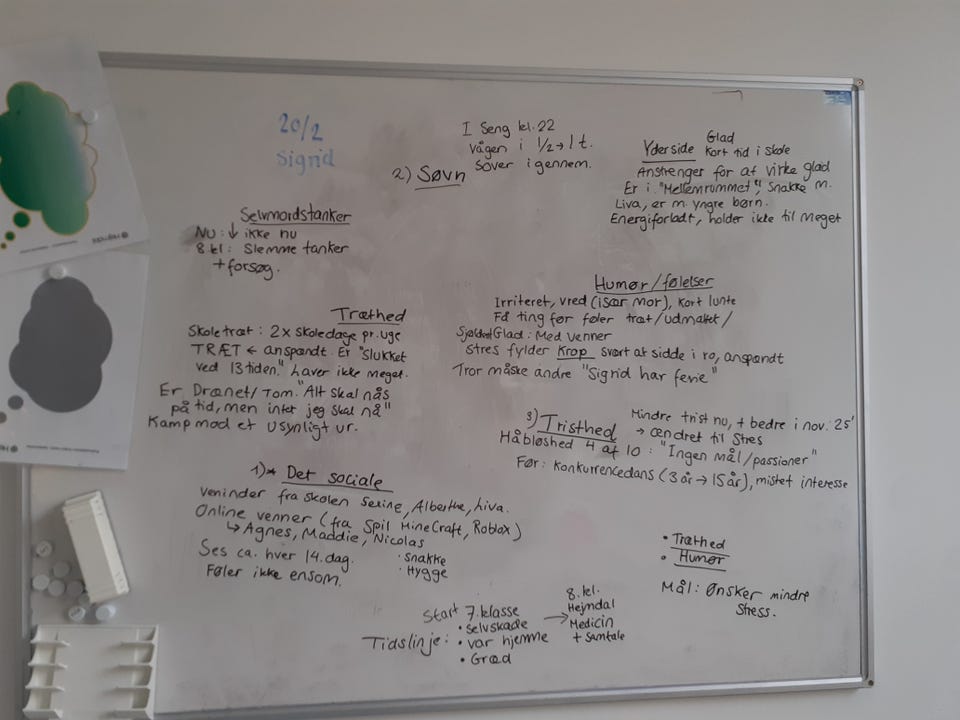 20/2
Sigrid
I Seng kl. 22
Vågen i 1/2 → 1 t.
Sover igennem.
2) Søvn
Glad
Yderside Kort tid i skole
Anstrenger for at virke glad
Er i "Mellemrummet", Snakke m.
Liva, er m. yngre børn.
Energiforladt, holder ikke til meget
Selvmordstanker
NU: ↓ ikke nu
8.kl: Slemme tanker
+ forsøg.
Humør/følelser
Irriteret, vred (især mor), kort lunte
Få ting før føler træt/udmattet/
Sjældent Glad: Med venner
stres fylder Krop svært at sidde i ro, anspændt
Tror måske andre "Sigrid har ferie"
Træthed
Skoletræt: 2 x skoledage pr. uge
TRÆT ← anspændt. Er "slukket
ved 13 tiden." laver ikke meget.
Er Drænet/Tom. "Alt skal nås
på tid, men intet jeg skal nå"
Kamp mod et usynligt ur.
3) Tristhed
Mindre trist nu, + bedre i nov. 25'
→ ændret til Stres
Håbløshed 4 af 10: "Ingen mål/passioner"
Før: Konkurrencedans (3 år → 15 år), mistet interesse
1)* Det sociale
Veninder fra skolen Seline, Alberthe, Liva.
Online venner (fra Spil MineCraft, Roblox)
↳ Agnes, Maddie, Nicolas
Ses ca. hver 14. dag.
• Snakke
• Hygge
Føler ikke ensom.
• Træthed
• Humør
Mål: Ønsker mindre
Stress.
Tidslinje:
Start 7. klasse
• Selvskade
• var hjemme
• Græd
→ 8. kl.
Hejmdal
Medicin
+ Samtale